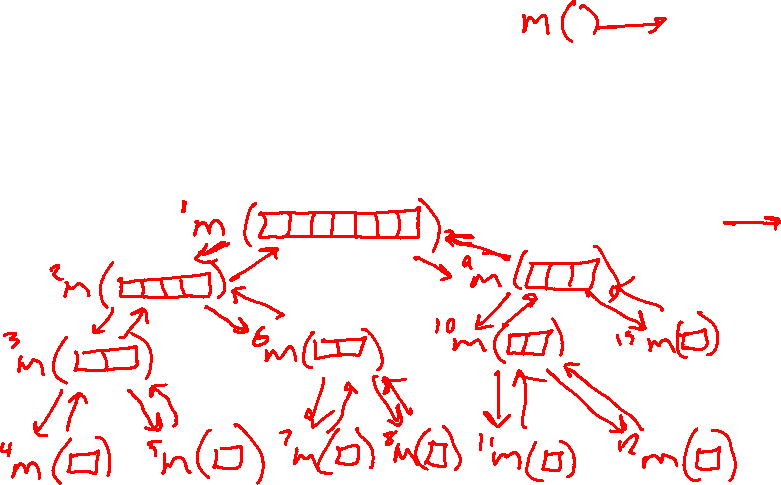 m()
1 m()
2 m() 9 m()
3 m() 6 m() 10 m() 13 m()
4 m() 5 m() 7 m() 8 m() 11 m() 12 m()